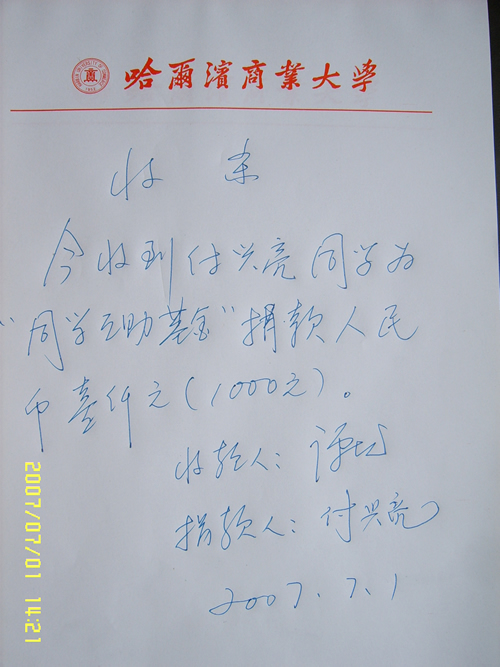 哈爾濱商業大學
收 条
今收到付兴亮同学为
"同学互助基金"捐款人民
币壹仟元(1000元)。
收款人:
捐款人:付兴亮
2007.7.1
2007/07/01 14:21